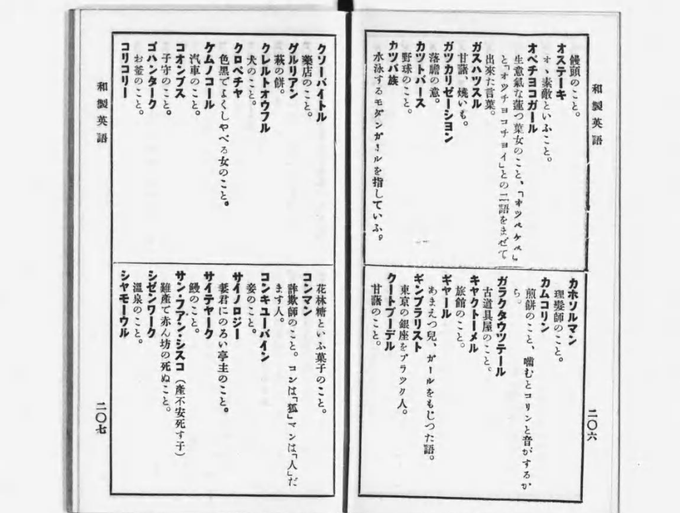 和製英語
饅頭のこと。
オステーキ
オヽ素敵といふこと。
オペチヨコガール
生意氣な蓮つ葉女のこと、「オツペケペ」
と「オツチヨコチヨイ」との二語をまぜて
出來た言葉。
ガスハツスル
甘藷、燒いも。
ガツカリゼーシヨン
落膽の意。
カツトバース
野球のこと。
カツパ族
水泳するモダンガールを指していふ。
カホソルマン
理髮師のこと。
カムコリン
煎餅のこと、嚙むとコリンと音がするか
ら。
ガラクタウツテール
古道具屋のこと。
キヤクトーメル
旅館のこと。
ギヤール
あまえつ兒、ガールをもじつた語。
ギンブラリスト
東京の銀座をブラツク人。
クートプーデル
甘藷のこと。
二〇六
クソーバイトル
藥店のこと。
グルリアン
萩の餠。
クレルトオウフル
犬のこと。
クロペチヤ
色黑でよくしやべる女のこと。
ケムノコール
汽車のこと。
コオンブス
子守のこと。
ゴハンターク
お釜のこと。
コリコリー
花林糖といふ菓子のこと。
コンマン
詐欺師のこと。コンは「狐」マンは「人」だ
ます人。
コンキユーバイン
妾のこと。
サイノロジー
妻君にのろい亭主のこと。
サイテヤーク
鰻のこと。
サン・フアン・シスコ(産不安死す子)
難産で赤ん坊の死ぬこと。
シゼンワーク
溫泉のこと。
シヤモーウル
和製英語
二〇七